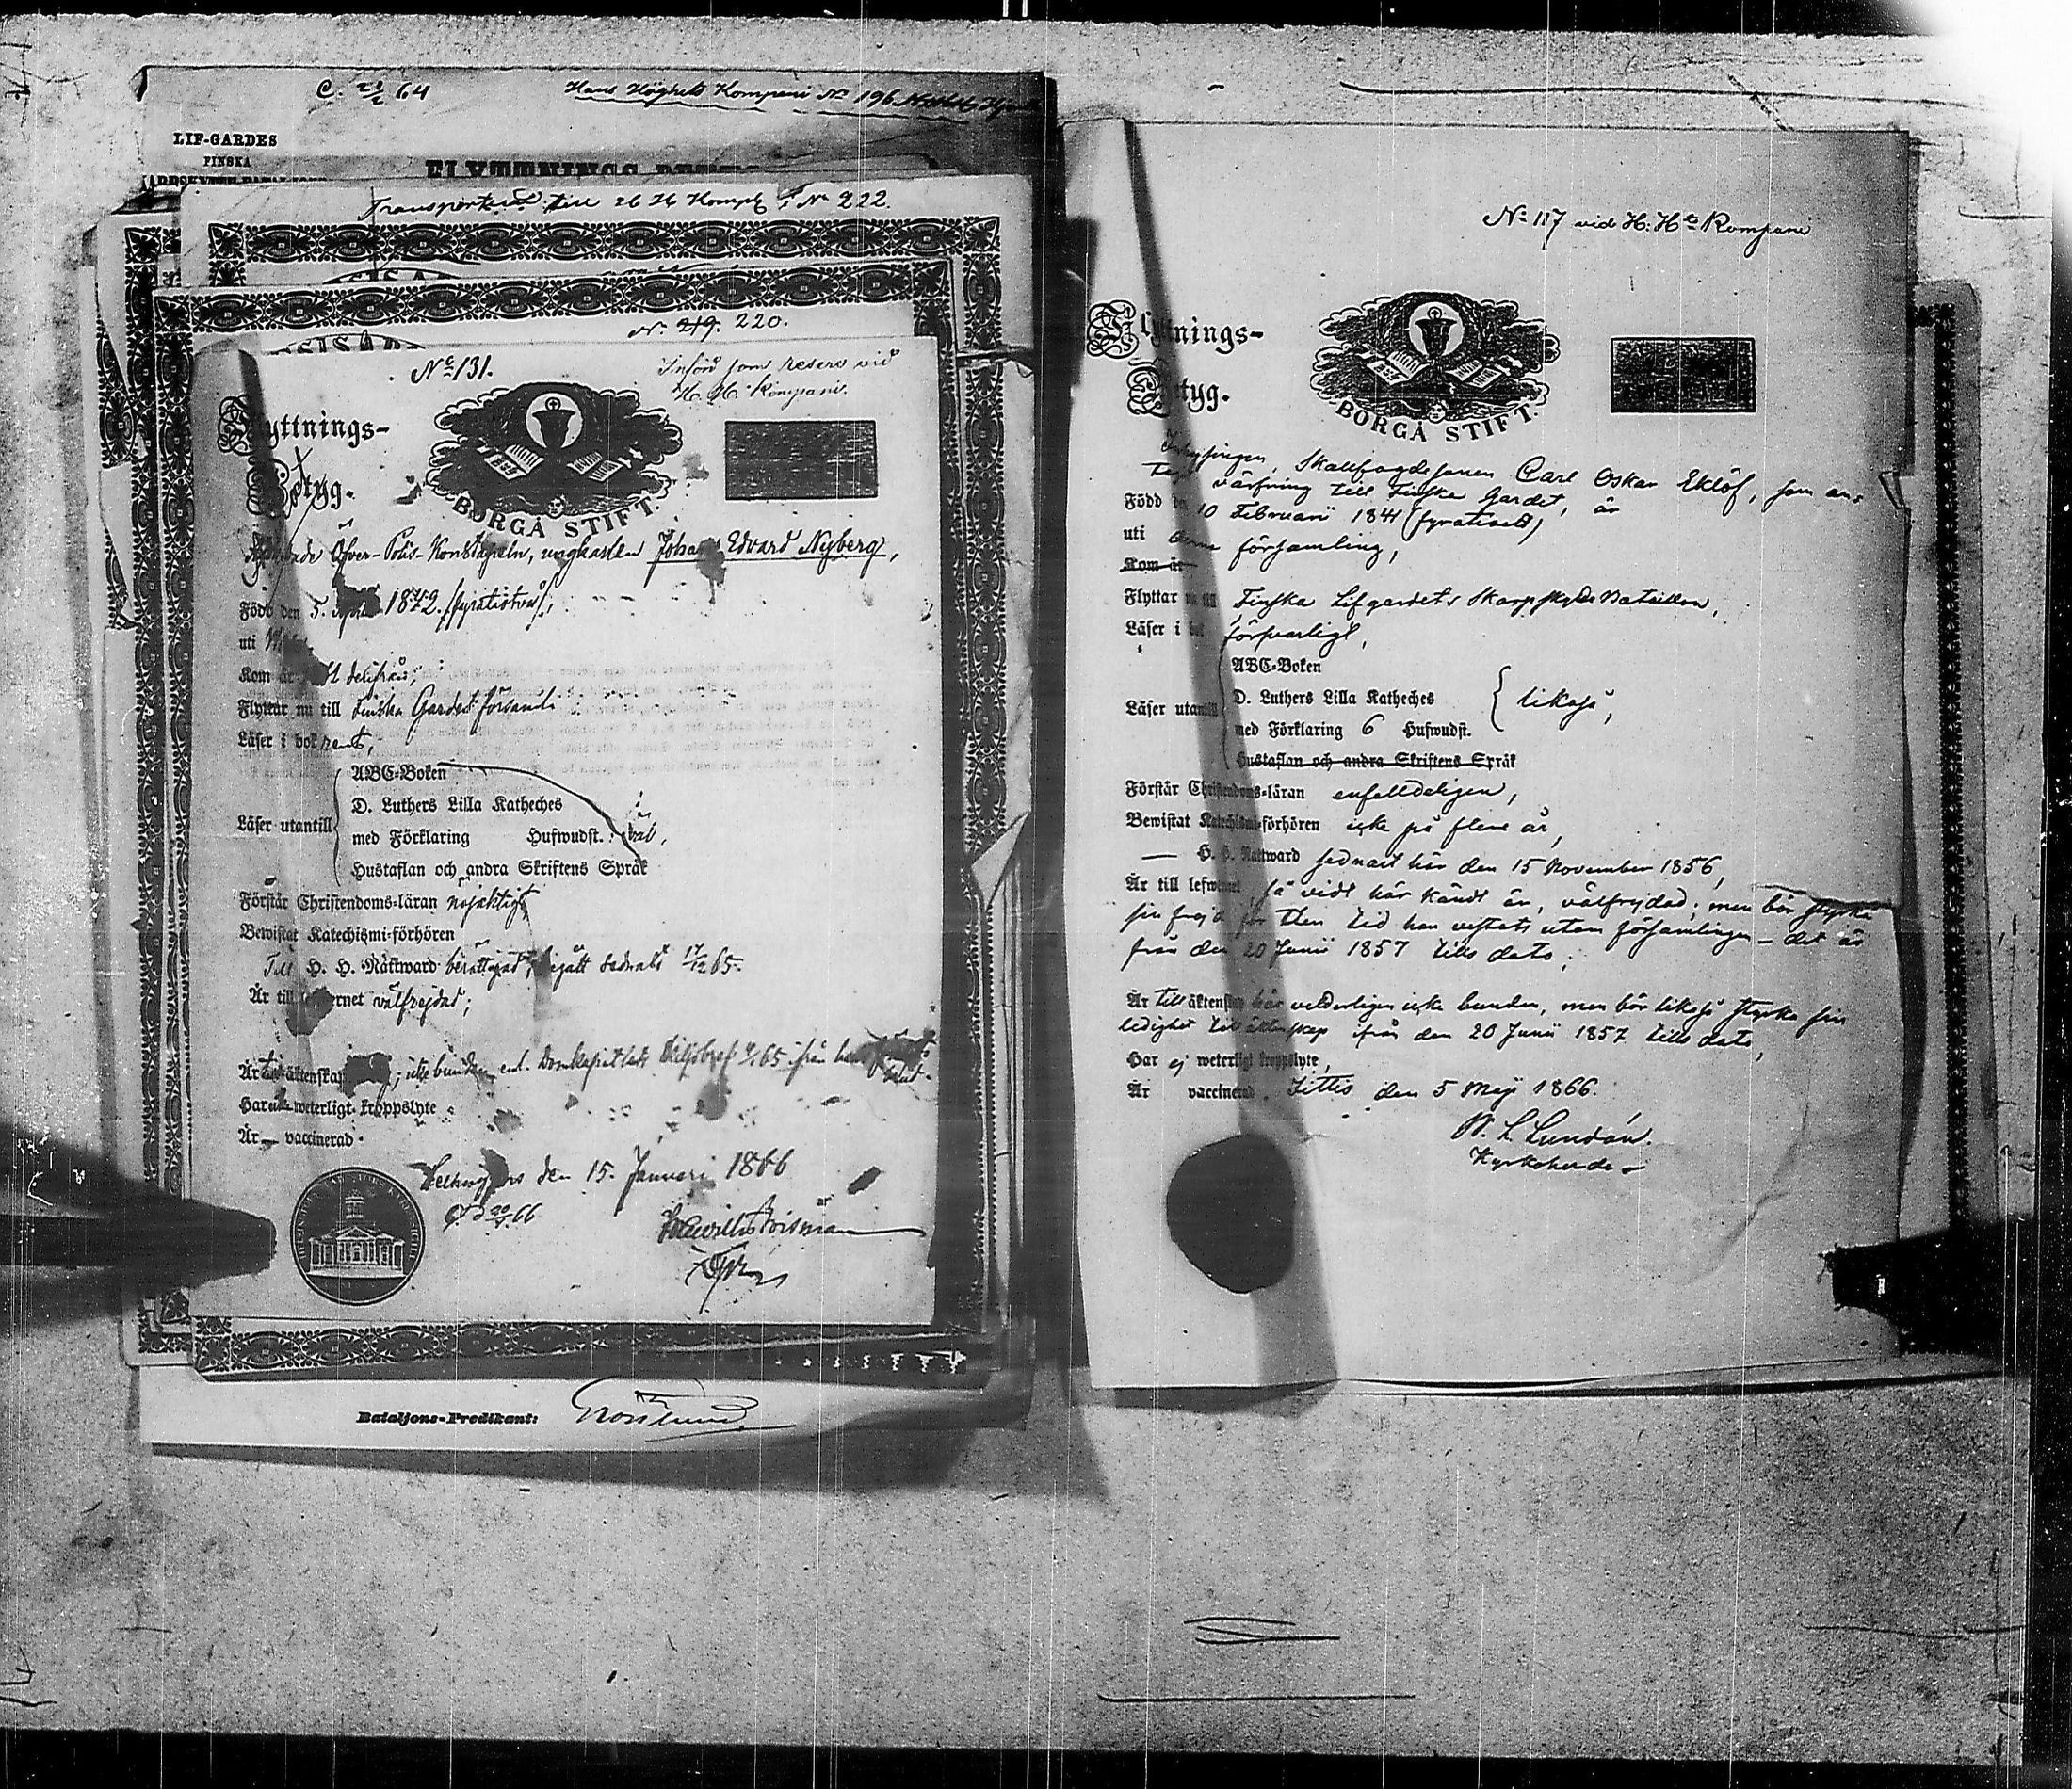 C. 28/2 64
Hans Höghets Kompani No 196
LIF-GARDES
FINSKA
FLYTTNINGS-BETYG
Transporterad till H H Komp No 222.
No 219. 220.
No 131.
Införd som reserv vid
H. H. Kompani.
Flyttnings-
Betyg.
BORGÅ STIFT.
Öfver-Polis-Konstapeln, ungkarlen Johan Edvard Nyberg,
Född den 5. 1842. /fyratiotvå/,
uti
Kom år
Flyttar nu till Finska Gardets församl:
Läser i bok rent,
ABC-Boken
D. Luthers Lilla Katheches
Läser utantill
med Förklaring Hufwudst. väl,
Hustaflan och andra Skriftens Språk
Förstår Christendoms-läran nöjaktigt
Bewistat Katechismi-förhören
Till H. H. Nattward berättigad, begått sednast 17/12 65.
Är till lefwernet välfrejdad;
Är till äktenskap ; icke bunden, enl. Domkapitlets Skiljobref 65 ifrån
Har weterligt kroppslyte
Är — vaccinerad.
Helsingfors den 15. Januari 1866
Bataljons-Predikant:
No 117 vid H: Hts Kompani
Flyttnings-
Betyg.
BORGÅ STIFT.
Skallfogdesonen Carl Oskar Eklöf, som an-
tagit värfning till Finska Gardet, är
Född den 10 Februarii 1841 (fyratioett)
uti denna församling,
Kom år
Flyttar nu till Finska Lifgardets Skarpskytte Bataillon,
Läser i bok försvarligt,
ABC-Boken
D. Luthers Lilla Katheches
Läser utantill likaså,
med Förklaring 6 Hufwudst.
Hustaflan och andra Skriftens Språk
Förstår Christendoms-läran enfaldeligen,
Bewistat Katechismi-förhören icke på flere år,
— H. H. Nattward sednast här den 15 November 1856,
Är till lefwernet så vidt här kändt är, välfrejdad; men bör styrka
sin frejd för den tid han vistats utom församlingen – det är
från den 20 Junii 1857 tills dato;
Är till äktenskap här veterligen icke bunden, men bör likaså styrka sin
ledighet till äktenskap ifrån den 20 Junii 1857 tills dato,
Har ej weterligt kroppslyte,
Är vaccinerad. Jittis den 5 Maji 1866.
Kyrkoherde